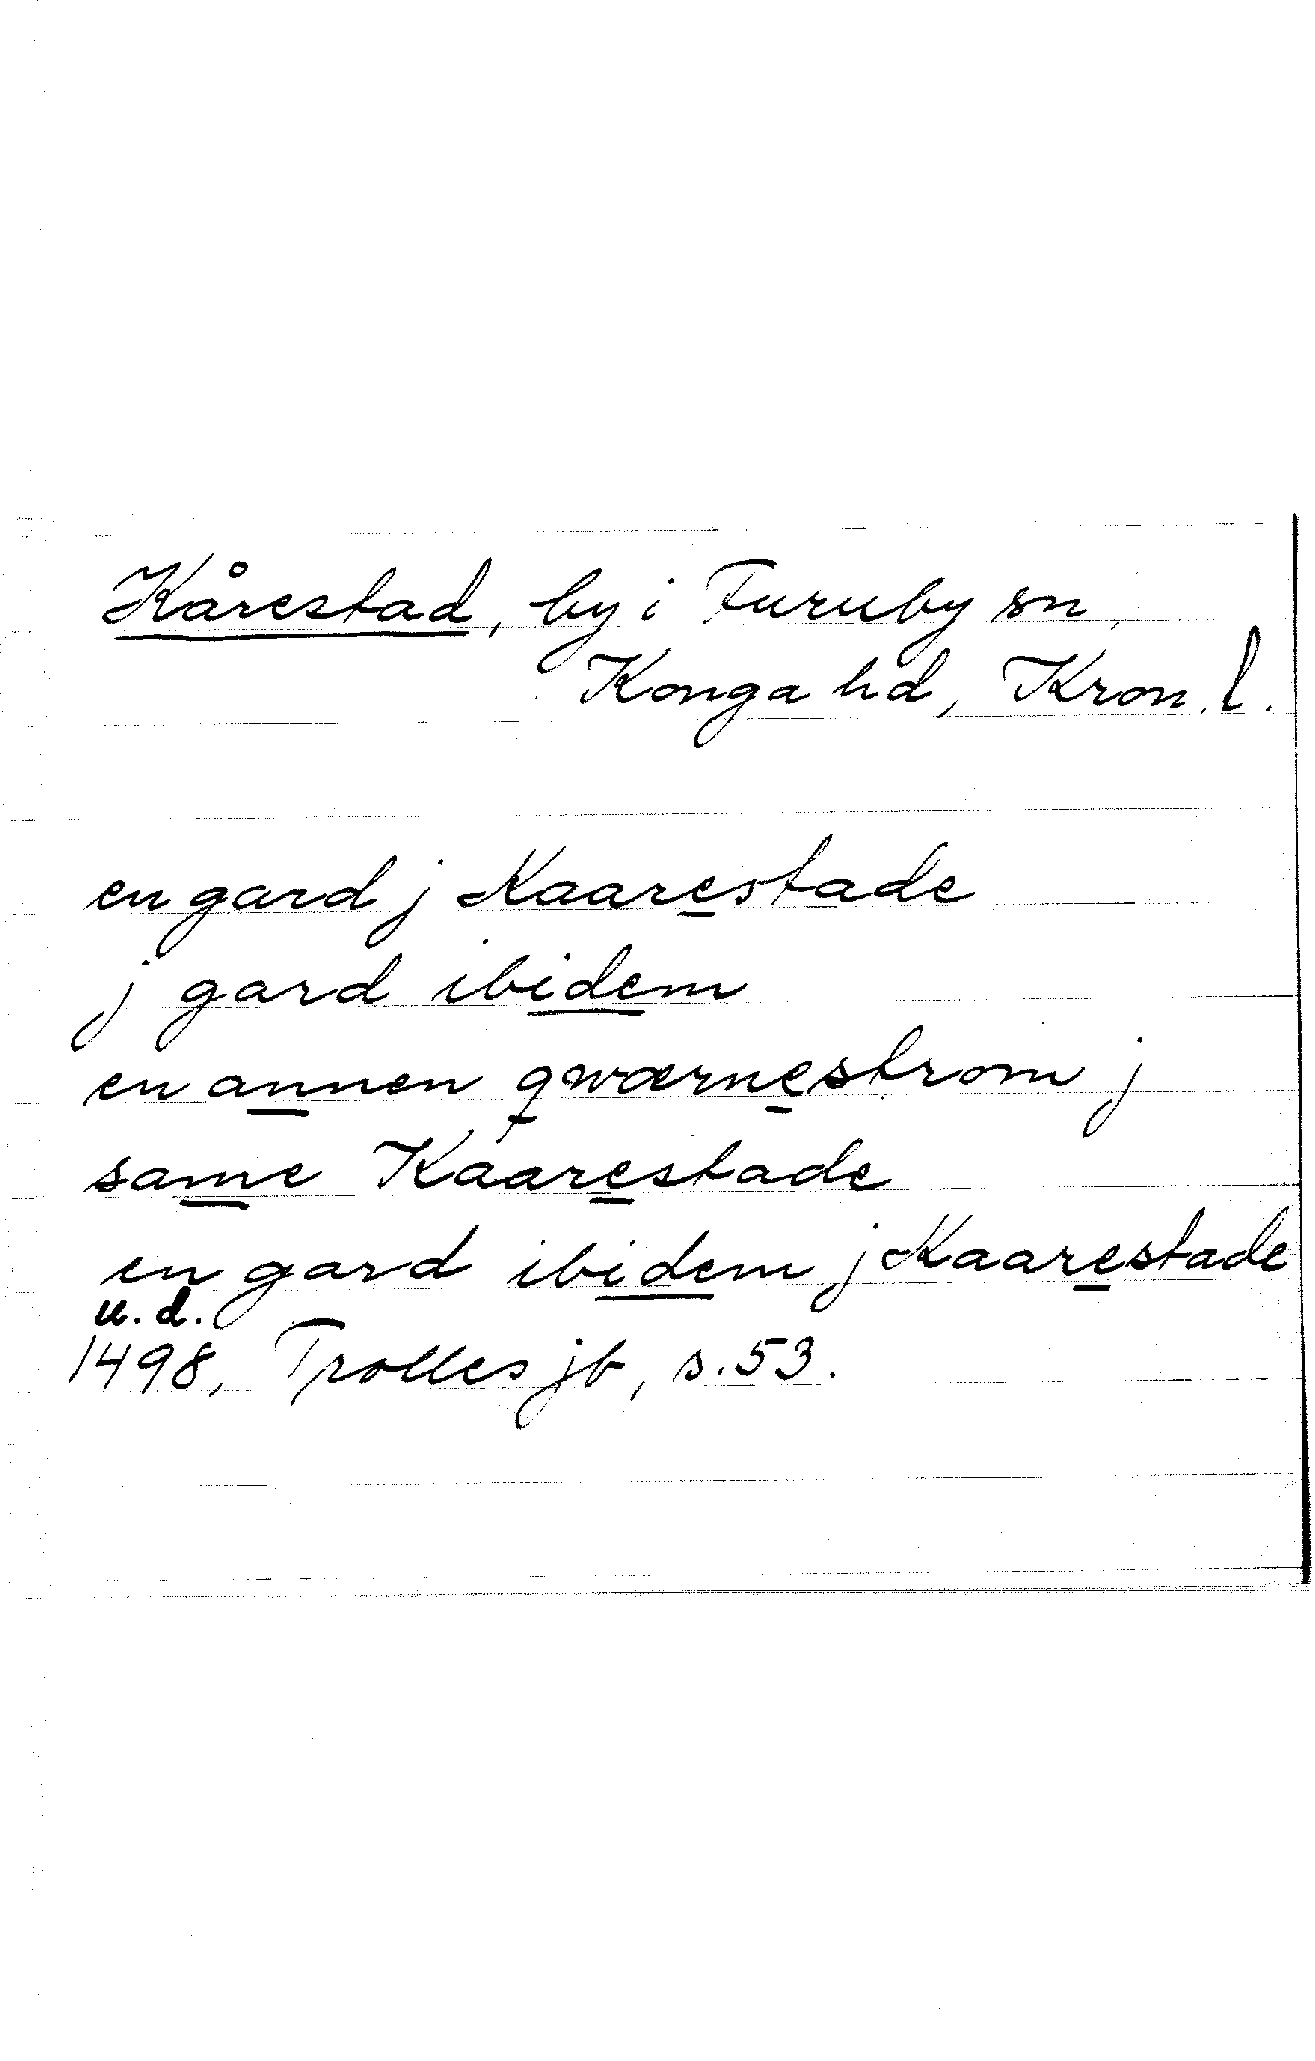 Kårestad, by i Furuby sn,
Konga hd, Kron. l.
en gard j Kaarestade
j gard ibidem
en annen qwærnestrom j
same Kaarestade
en gard ibidem j Kaarestade
u. d.
1498, Trolles jb, s. 53.